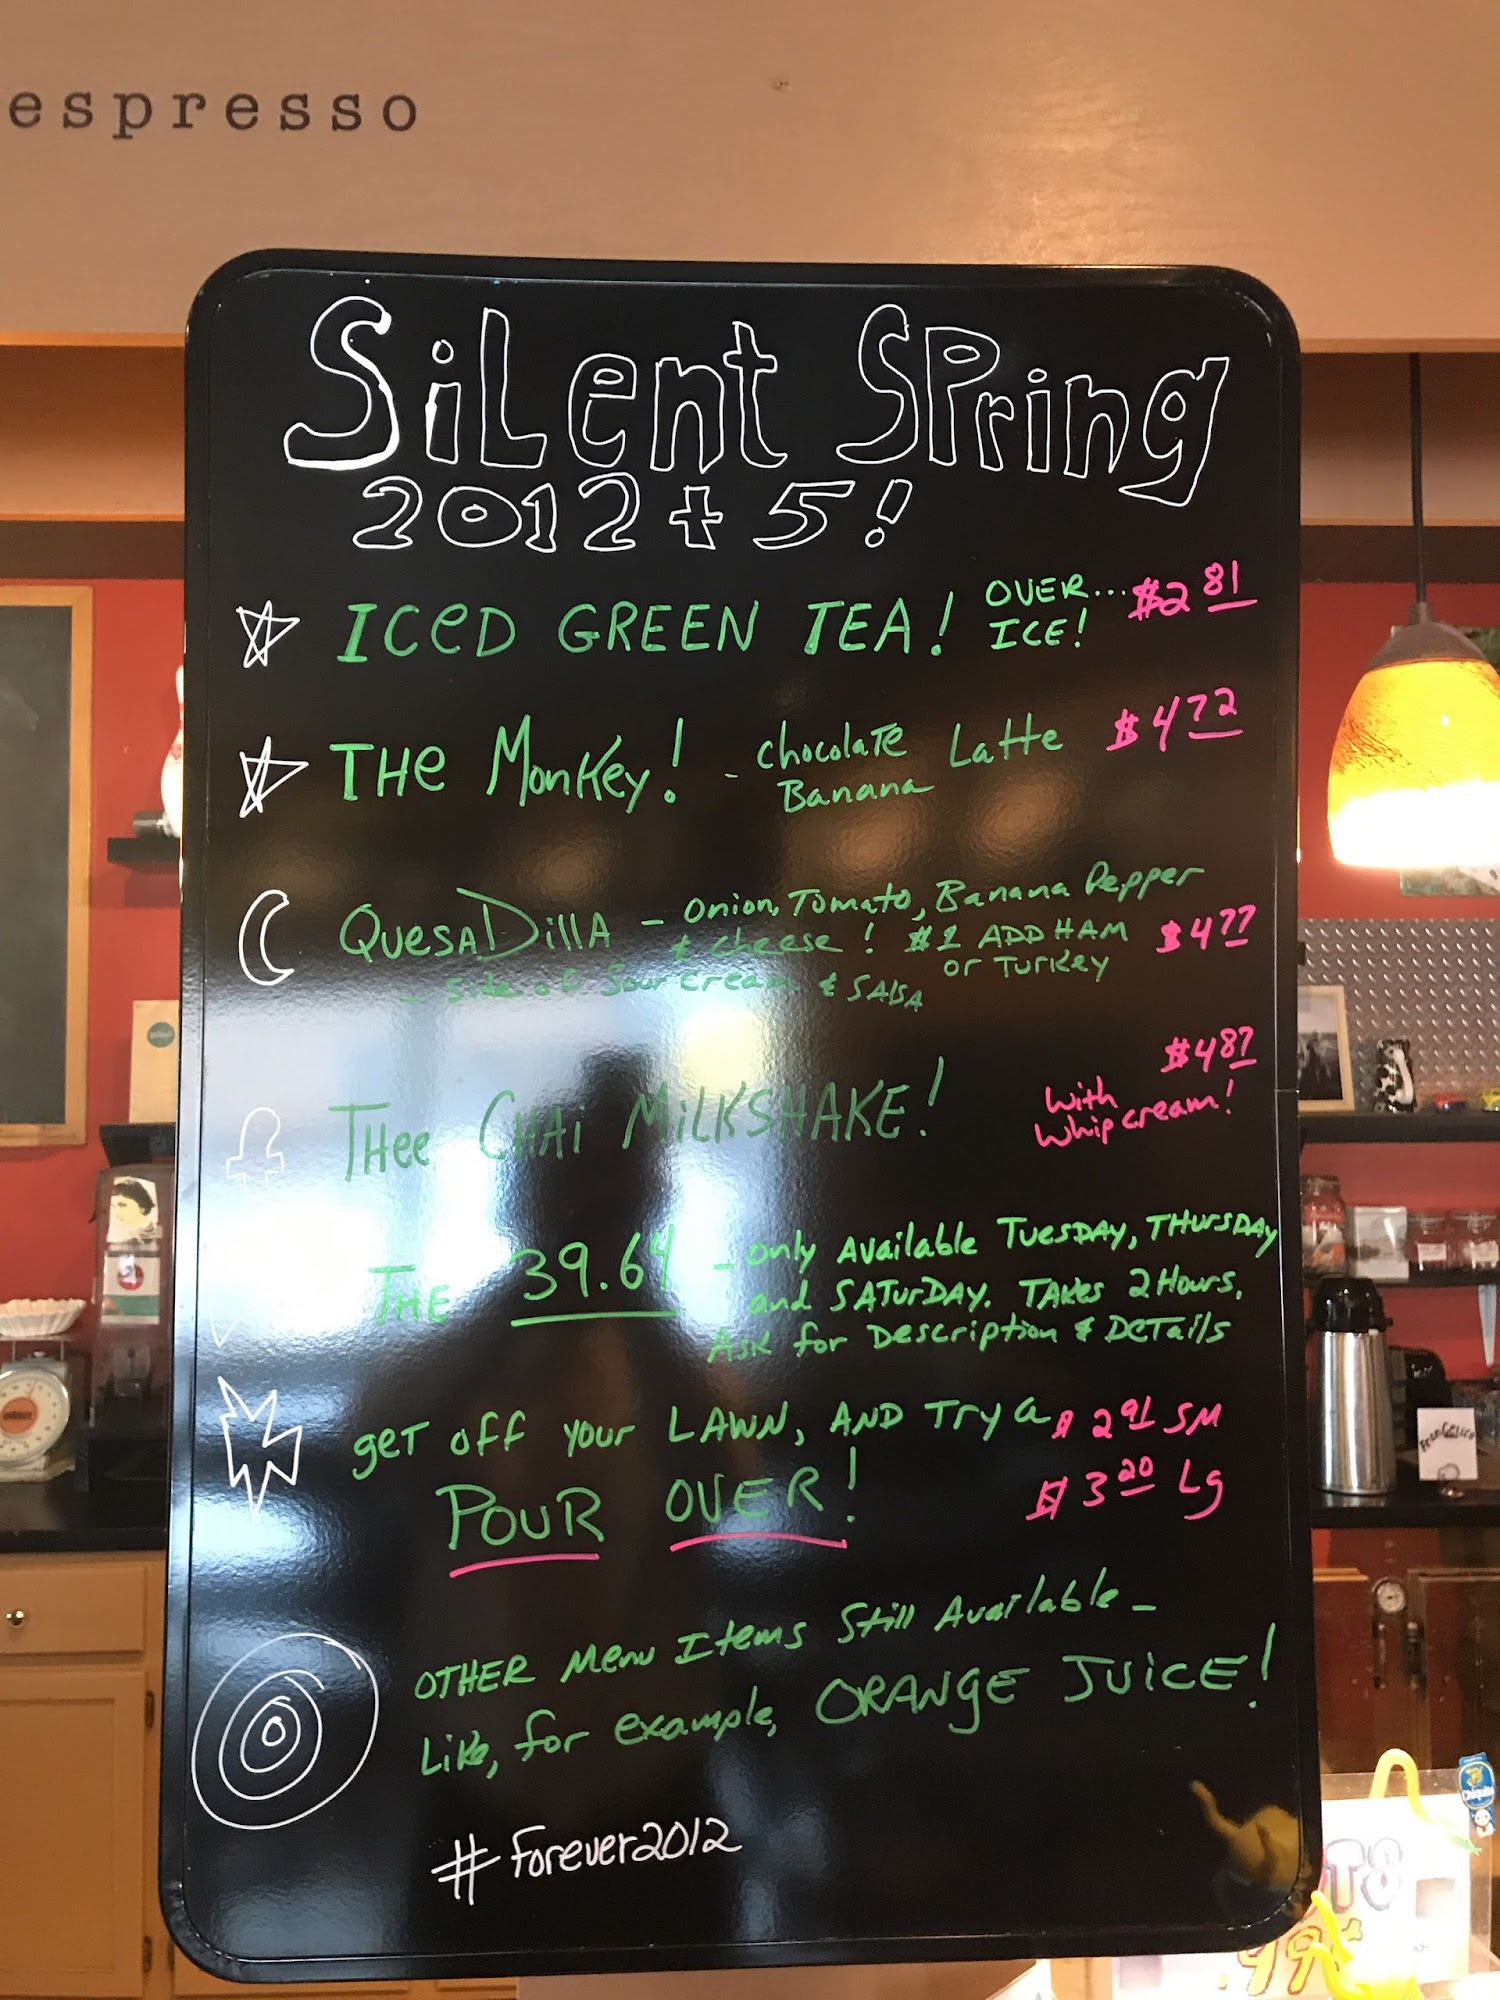 espresso
SiLent SPring
2012 + 5!
ICeD GREEN TEA! OVER... ICE! $2 81
THe MonKey! - chocolaTe Banana Latte $4 72
QuesADillA - Onion, Tomato, Banana Pepper
& cheese! #1 ADD HAM or Turkey $4 77
- Side of Sour cream & SAlsA
$4 87
THee CHAi MiLKSHAKE! With Whip cream!
THE 39.64 - only AvAilable TuesDAy, THursDAy
and SATurDAy. TAKes 2 Hours.
Ask for Description & DeTails
geT off your LAWN, AND Try a $2 91 SM
POUR OVER! $3 20 Lg
OTHER Menu Items Still Available -
Like, for example, ORANGE JUiCE!
#Forever2012
Chiquita